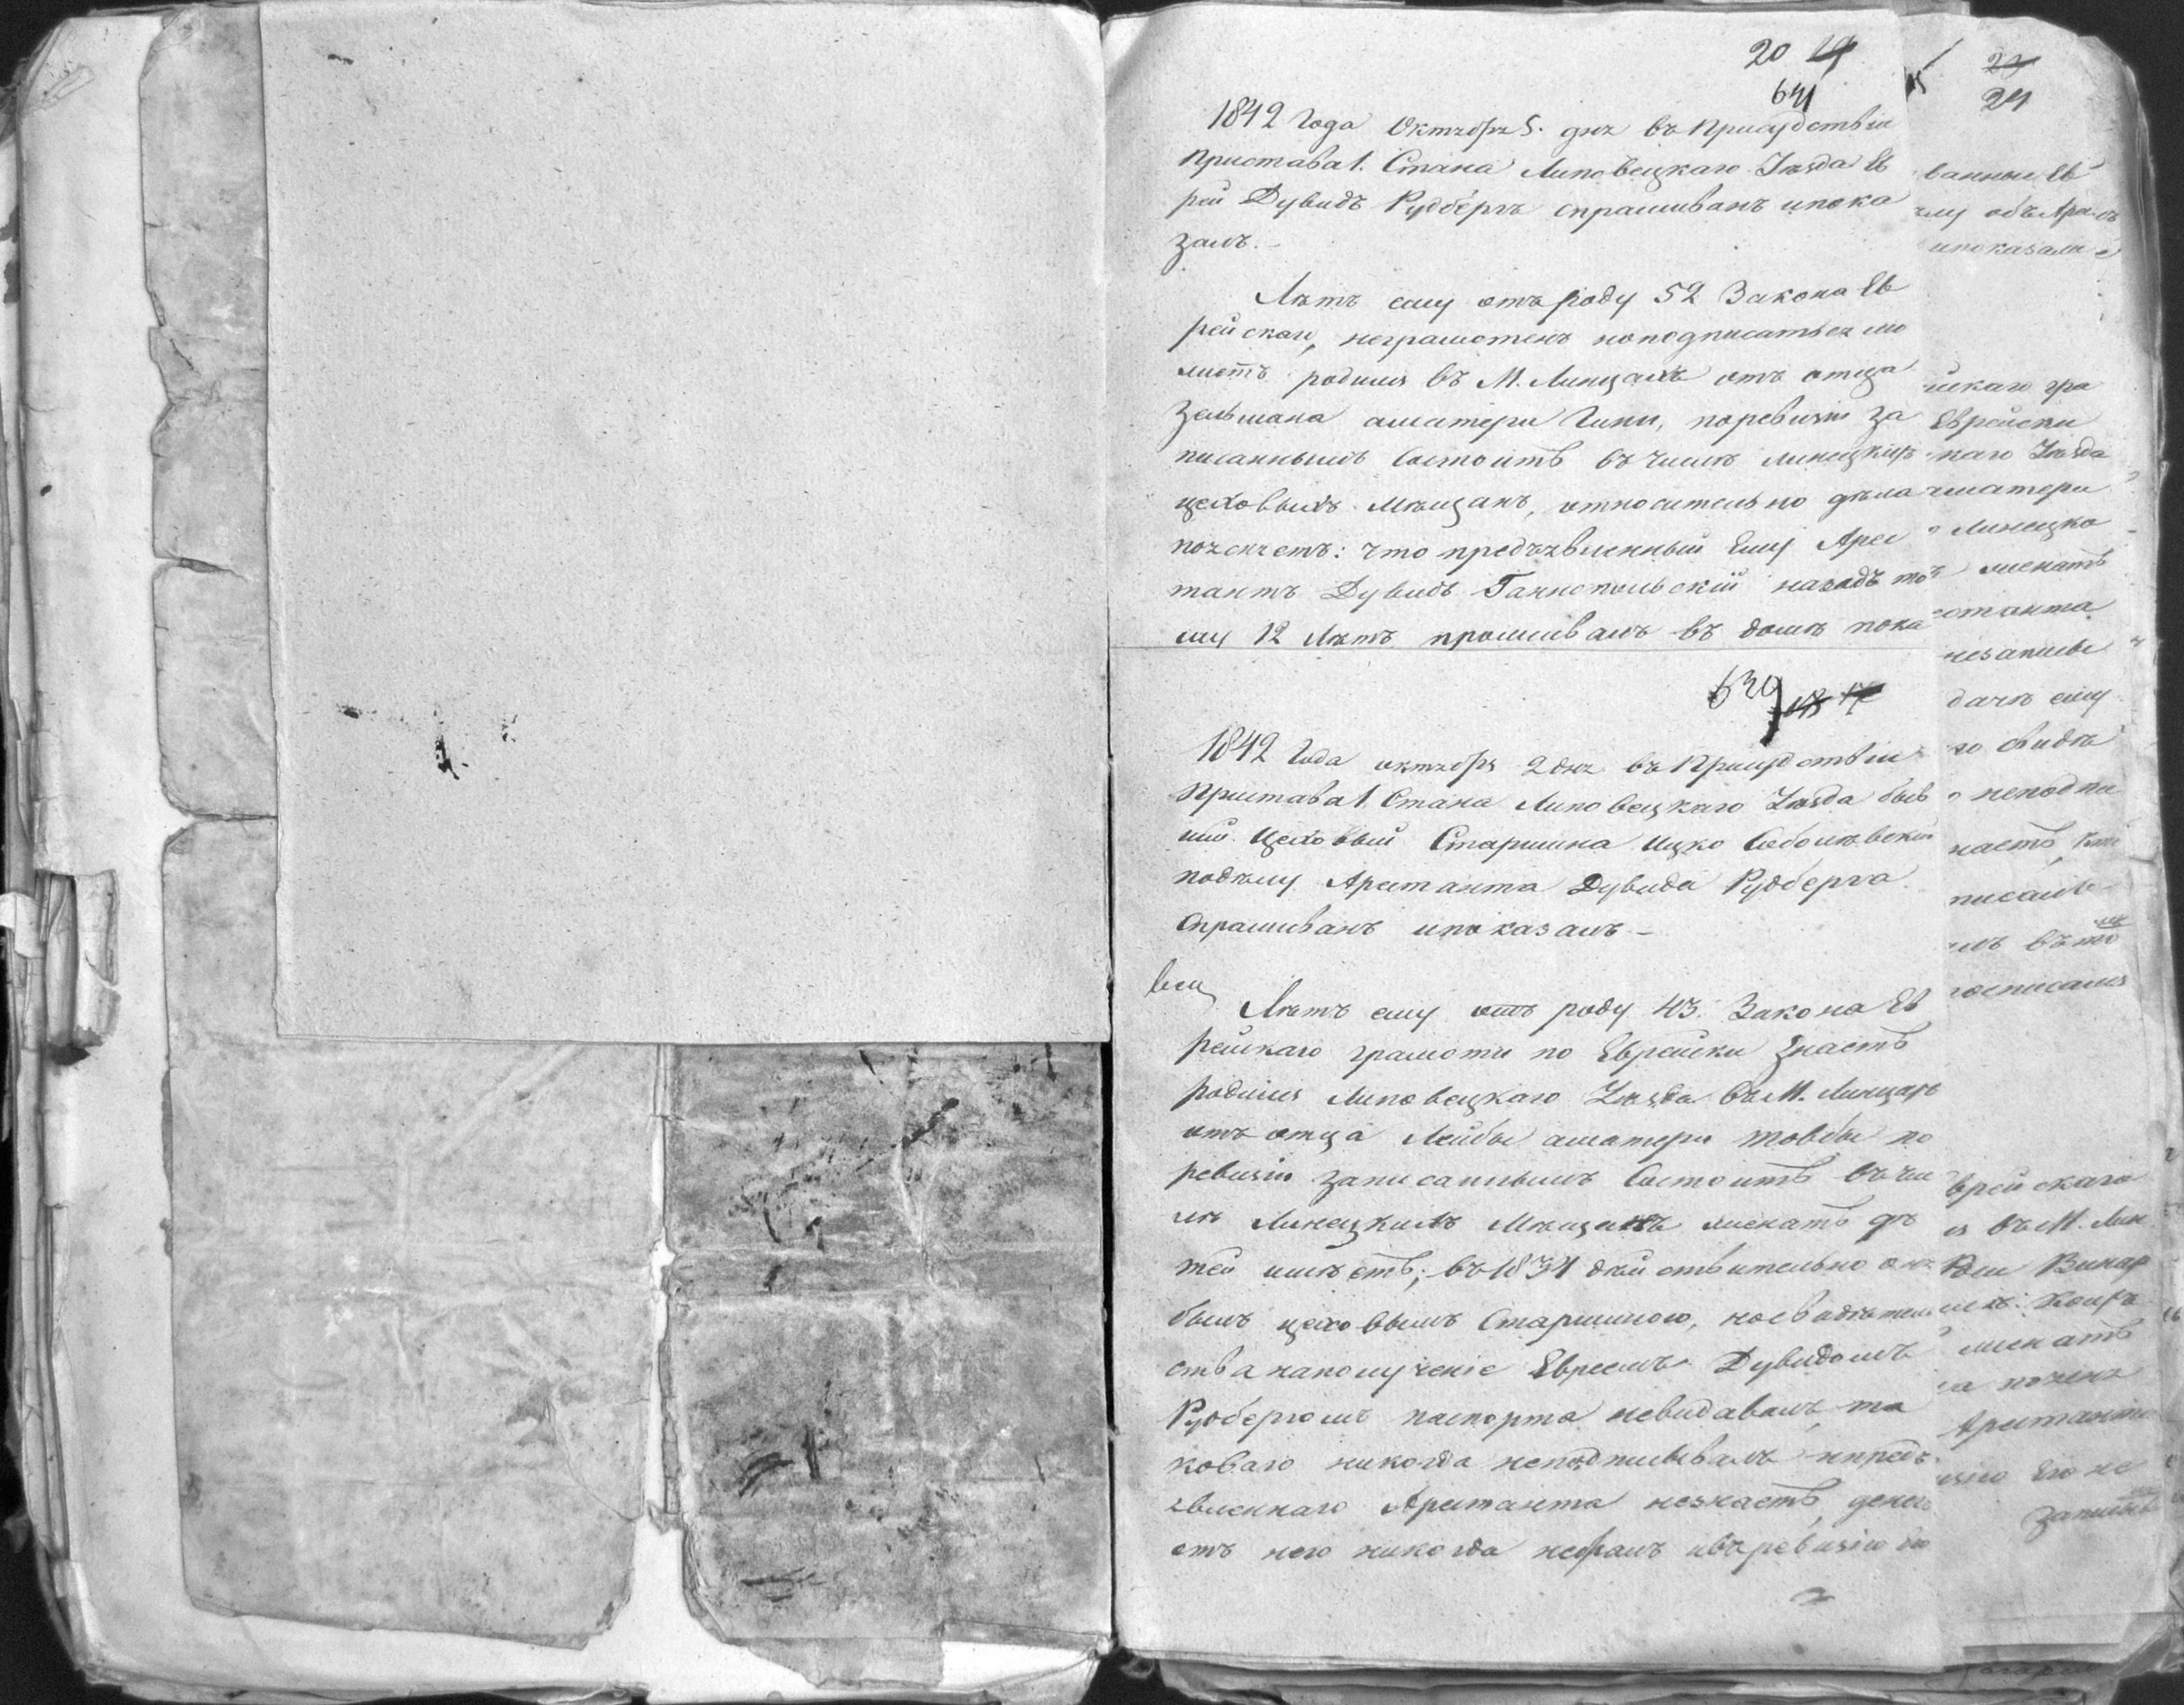 20
641
1842 Года Октября 5. дня въ Присудствіи
Пристава 1. Стана Липовецкаго Уѣзда Ев
рей Дувидъ Рудбергъ спрашиванъ ипока
залъ.-
Лѣтъ ему отъ роду 52 Закона Ев
рейскаго, неграмотенъ
родился въ М. Линцахъ отъ отца
Зельмана аматери Гини, поревизіи за
писаннымъ Состоитъ въ числѣ линецкихъ
цеховыхъ Мѣщанъ, относительно дѣла
пояснетъ: что предъявленный Ему Арес
тантъ Дувидъ Гайнопольскій назадъ то
му 12 Лѣтъ проживалъ въ домѣ пока
639
1842 Года октября 2 дня въ Присудствіи
Пристава 1. Стана Липовецкаго Уѣзда быв
шій Цеховый Старшина Ицко Соболѣвскій
подѣлу Арестанта Дувида Рудберга
Спрашиванъ ипоказалъ -
Лѣтъ ему отъ роду 43. Закона Ев
рейскаго грамоти по Еврейски Знаетъ
родился Липовецкаго Уѣзда въ М. Линцахъ
отъ отца Лейбы аматери товбы по
ревизіи записаннымъ Состоитъ въ чи
слѣ Линецкихъ Мѣщанъ женатъ дѣ
тей имѣетъ; въ 1834 дѣйствительно онъ
былъ цеховымъ Старшиною, носвидѣтель
ства наполученіе Евреемъ Дувидомъ
Рудбергомъ паспорта невидавалъ, та
коваго никогда неподписывалъ ипредъ
явленнаго Арестанта незнаетъ, денегъ
отъ него никогда небралъ ивъревизію его
24
ванные Ев
лу объ Арес
ипоказали
йскаго гра
Еврейски
каго Уѣзда
аматери
Линецко
женатъ
станта
незаписы
дачѣ ему
го свидѣ
неподпи
наетъ, кто
писалъ
росписался
врейскаго
я въ М. Лин
женатъ
Арестанта
его не